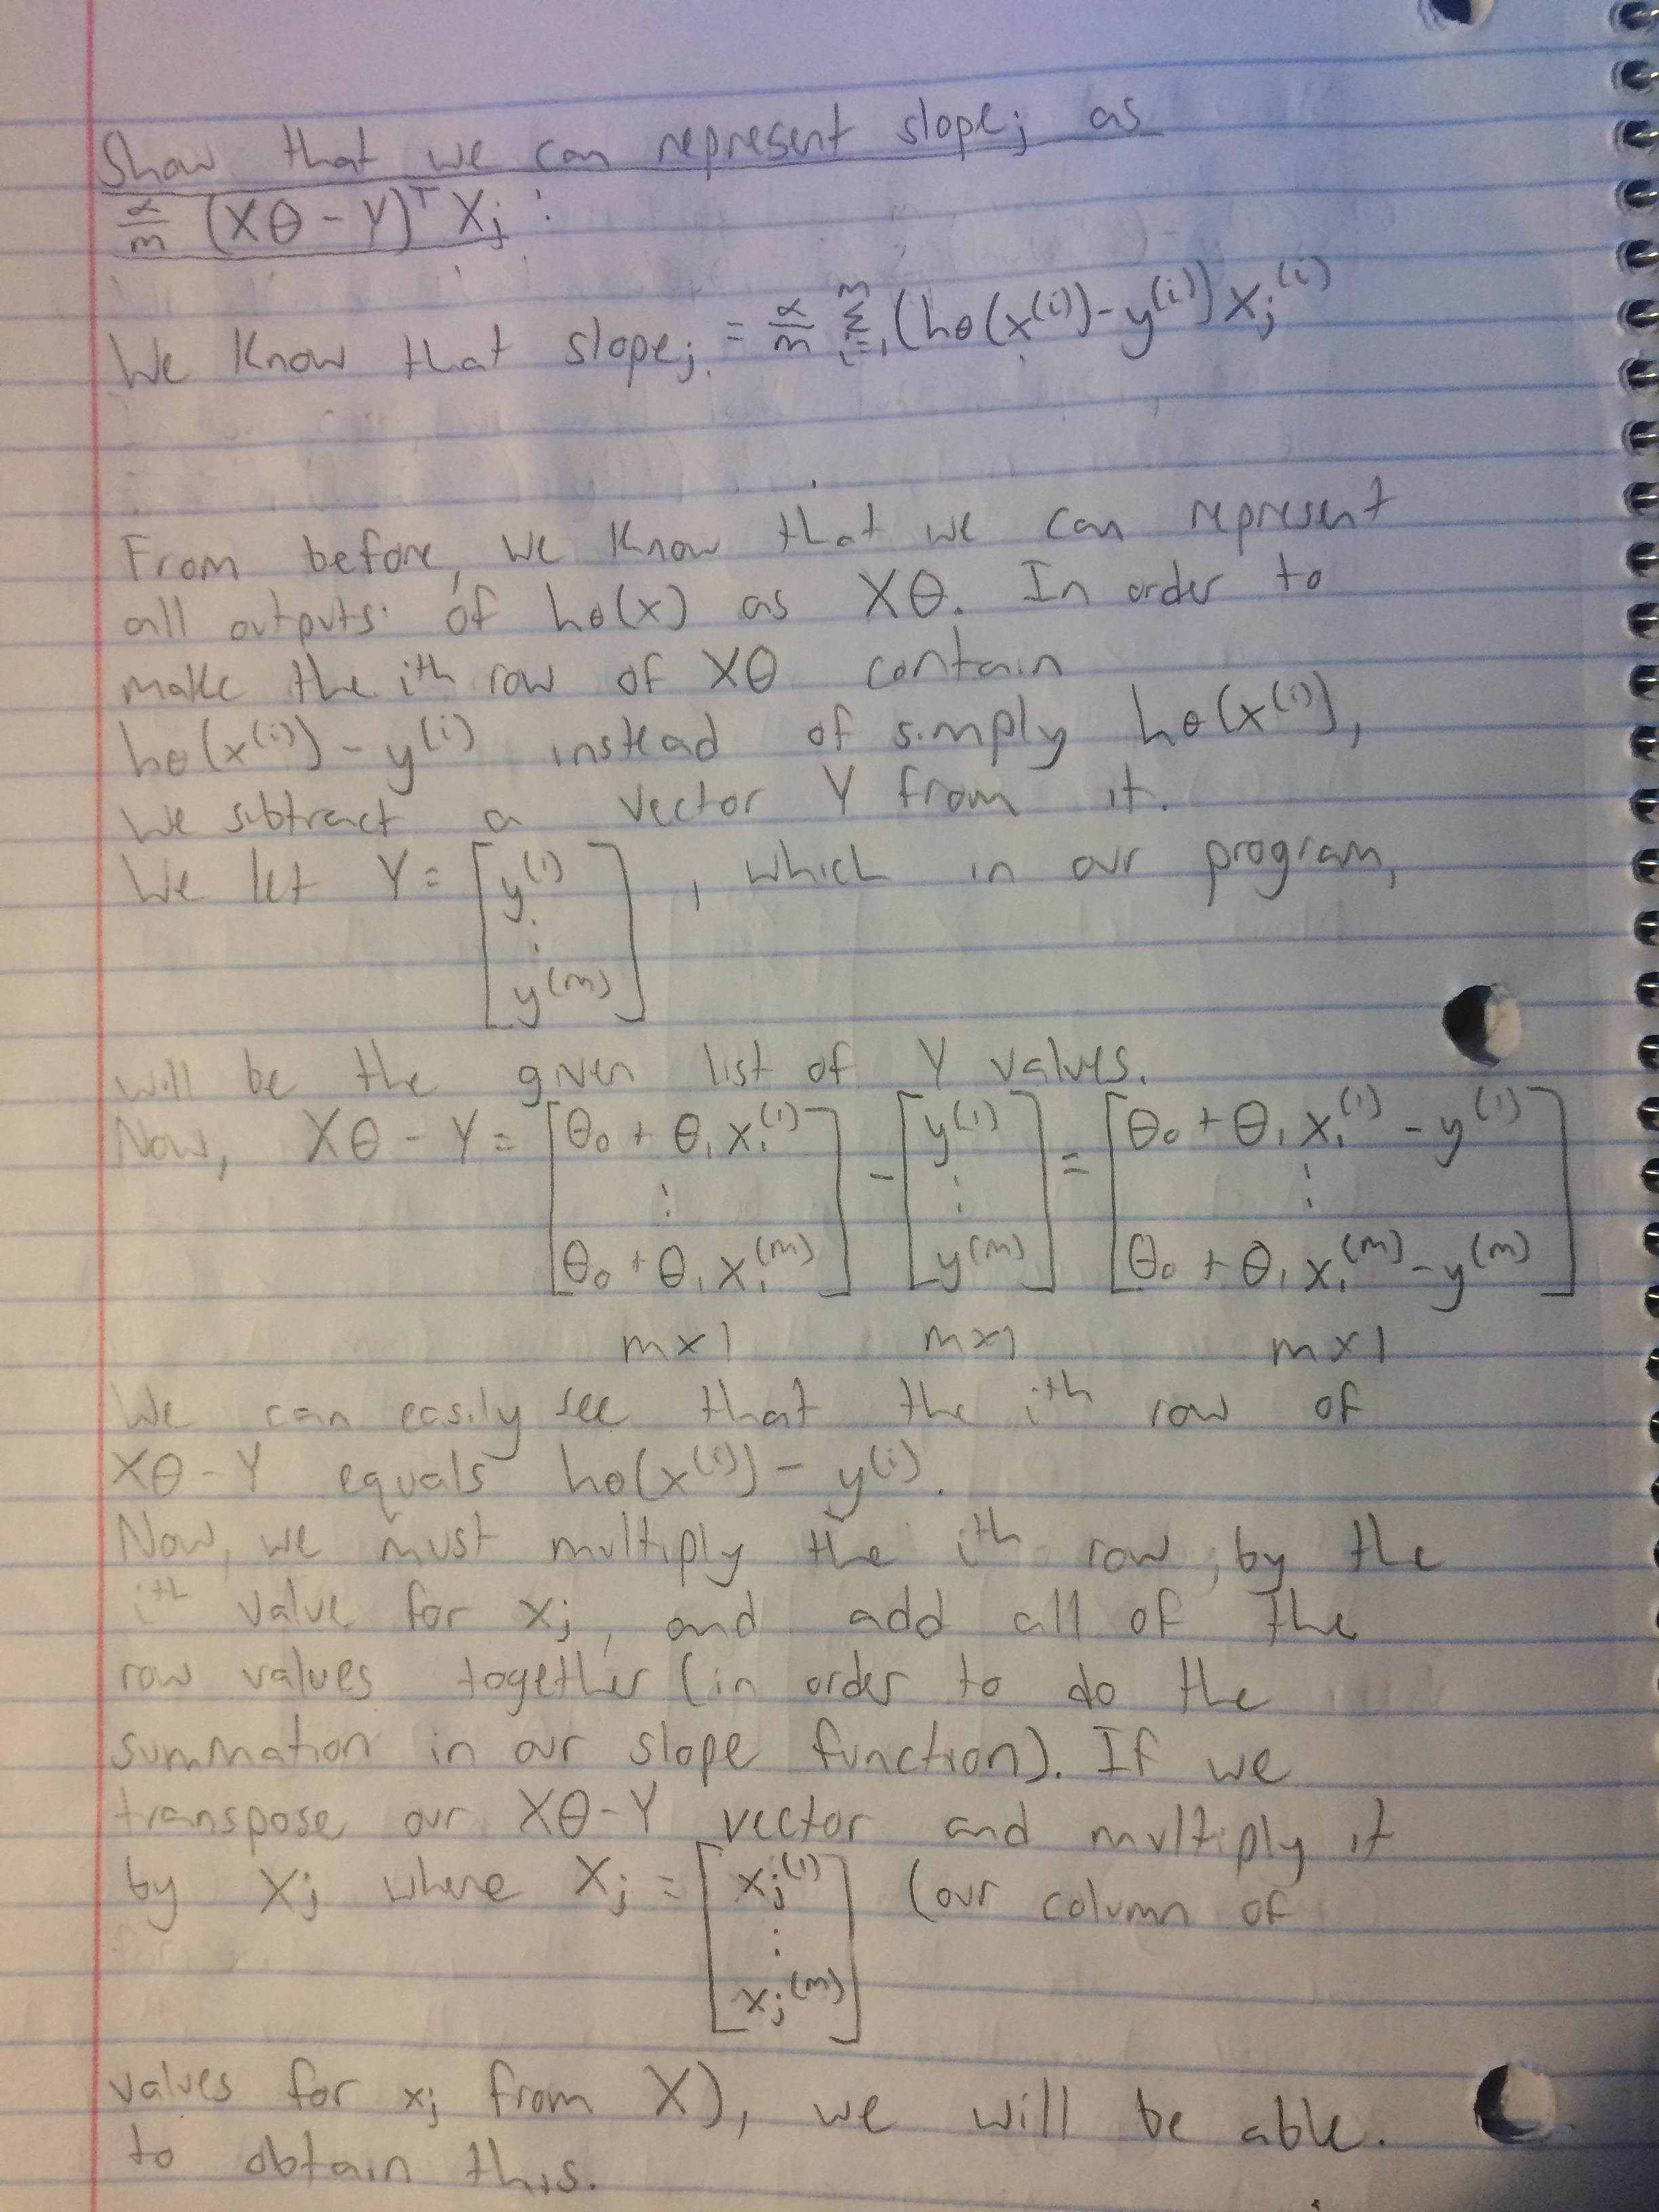 Show that we can represent slopej as
α/m (Xθ - Y)ᵀ Xj :
We know that slopej = α/m Σᵢ₌₁ᵐ (hθ(x⁽ⁱ⁾) - y⁽ⁱ⁾) xj⁽ⁱ⁾
From before, we know that we can represent
all outputs of hθ(x) as Xθ. In order to
make the ith row of Xθ contain
hθ(x⁽ⁱ⁾) - y⁽ⁱ⁾ instead of simply hθ(x⁽ⁱ⁾),
we subtract a vector Y from it.
We let Y = [y⁽¹⁾ ⋮ y⁽ᵐ⁾], which in our program,
will be the given list of Y values.
Now, Xθ - Y = [θ₀ + θ₁x₁⁽¹⁾ ⋮ θ₀ + θ₁x₁⁽ᵐ⁾] - [y⁽¹⁾ ⋮ y⁽ᵐ⁾] = [θ₀ + θ₁x₁⁽¹⁾ - y⁽¹⁾ ⋮ θ₀ + θ₁x₁⁽ᵐ⁾ - y⁽ᵐ⁾]
mx1 mx1 mx1
We can easily see that the ith row of
Xθ - Y equals hθ(x⁽ⁱ⁾) - y⁽ⁱ⁾.
Now, we must multiply the ith row, by the
ith value for xj and add all of the
row values together (in order to do the
summation in our slope function). If we
transpose our Xθ-Y vector and multiply it
by Xj where Xj = [xj⁽¹⁾ ⋮ xj⁽ᵐ⁾] (our column of
values for xj from X), we will be able
to obtain this.